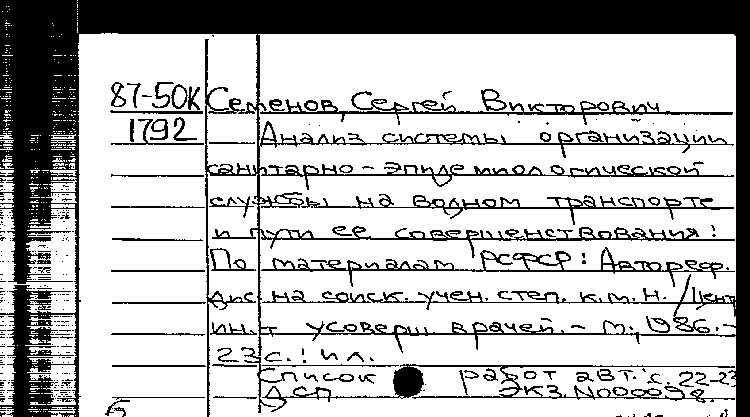 87-50К Семенов, Сергей Викторович
1792 Анализ системы организации
санитарно-эпидемиологической
службы на водном транспорте
и пути ее совершенствования:
По материалам РСФСР: Автореф.
дис. на соиск. учен. степ. к.м.н. / Центр
ин-т усоверш. врачей. - М., 1986. -
23 с.: ил.
Список работ авт.: с. 22-23
ДСП Экз. N000098.